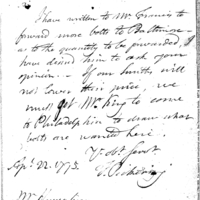 I have written to Mr. Francis to
forward more bolts to Baltimore -
as to the quantity to be forwarded, I
have desired him to ask your
opinion. - If your smiths will
not lower their price, we
must get Mr. King to come
to Philadelphia to draw what
bolts are wanted here.
Y. obt. servt.
T. Pickering
Apl. 22. 1795.